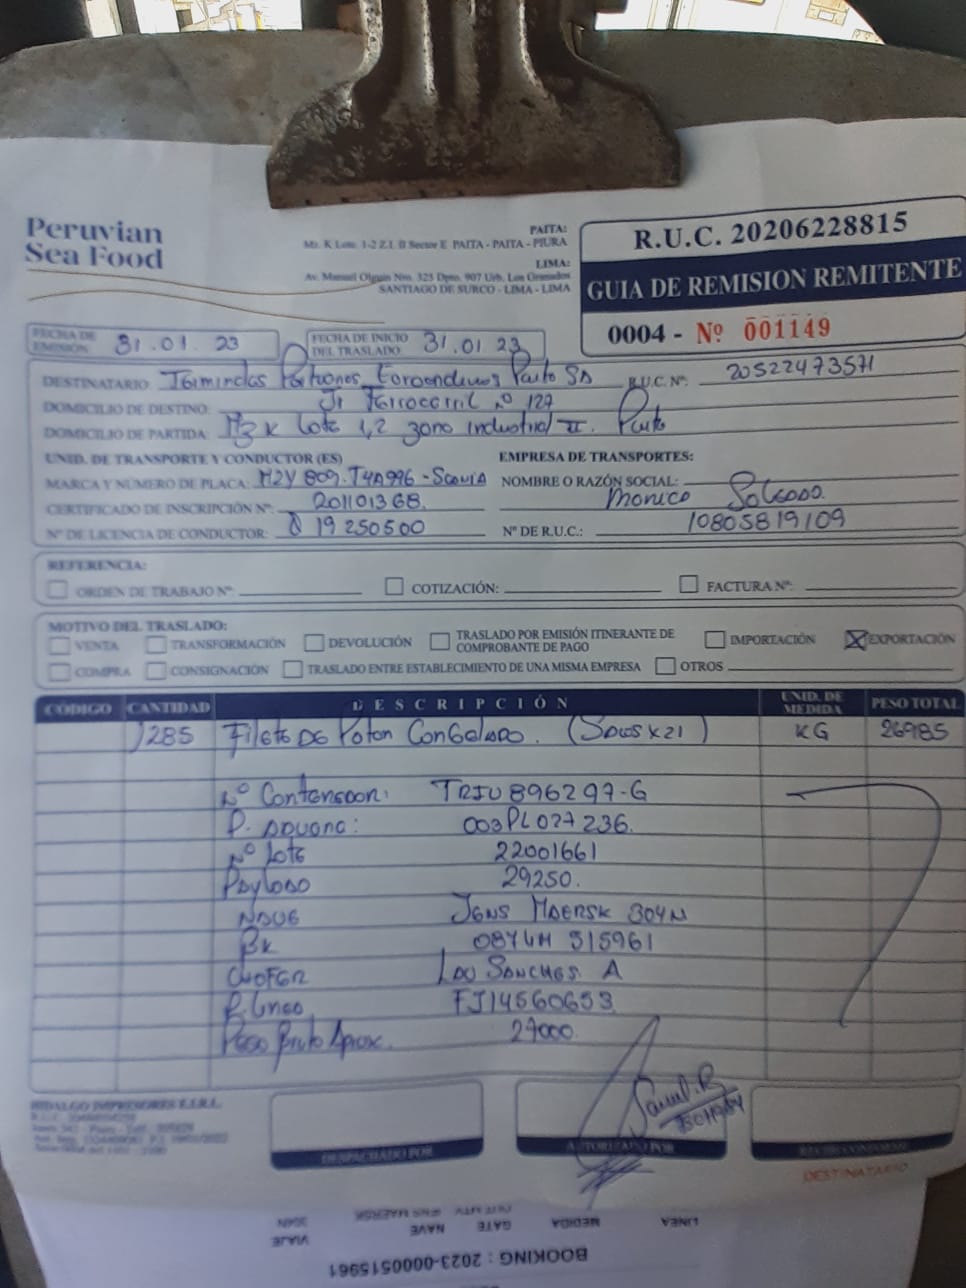 Peruvian
Sea Food
PAITA:
Mz. K Lote. 1-2 Z.I. II Sector E PAITA - PAITA - PIURA
LIMA:
Av. Manuel Olguin Nro. 325 Dpto. 907 Urb. Los Granados
SANTIAGO DE SURCO - LIMA - LIMA
R.U.C. 20206228815
GUIA DE REMISION REMITENTE
0004 - Nº 001149
FECHA DE EMISIÓN: 31.01.23
FECHA DE INICIO DEL TRASLADO 31.01 23
DESTINATARIO: Paita SA R.U.C. Nº: 20522473571
DOMICILIO DE DESTINO: Jr Ferrocarril Nº 127
DOMICILIO DE PARTIDA: Mz K Lote 1,2 zona industrial II. Paita
UNID. DE TRANSPORTE Y CONDUCTOR (ES) EMPRESA DE TRANSPORTES:
MARCA Y NÚMERO DE PLACA: T4A996 - Scania NOMBRE O RAZÓN SOCIAL: Monica
CERTIFICADO DE INSCRIPCIÓN Nº: 201101368.
Nº DE LICENCIA DE CONDUCTOR: 19250500 Nº DE R.U.C.: 10805819109
REFERENCIA:
ORDEN DE TRABAJO Nº: COTIZACIÓN: FACTURA Nº:
MOTIVO DEL TRASLADO:
VENTA TRANSFORMACIÓN DEVOLUCIÓN TRASLADO POR EMISIÓN ITINERANTE DE COMPROBANTE DE PAGO IMPORTACIÓN EXPORTACIÓN
COMPRA CONSIGNACIÓN TRASLADO ENTRE ESTABLECIMIENTO DE UNA MISMA EMPRESA OTROS
CÓDIGO CANTIDAD DESCRIPCIÓN UNID. DE MEDIDA PESO TOTAL
1285 Filete De Poton Congelado. (Sacos x 21) KG 26985
Nº Contenedor: TRIU 896297-6
P. Aduana: 003PL027236.
Nº Lote 22001661
Payload 29250.
Nave Jens Maersk 304N
Bk 087LM 515961
Chofer Sanches A
P. Linea FJ14560653
Peso Bruto Aprox. 27000.
HIDALGO IMPRESORES E.I.R.L.
DESPACHADO POR
AUTORIZADO POR
RECIBI CONFORME
DESTINATARIO
LINEA MEDIDA GATE NAVE VIAJE
MAERSK 304N
BOOKING : 2023-0000515961